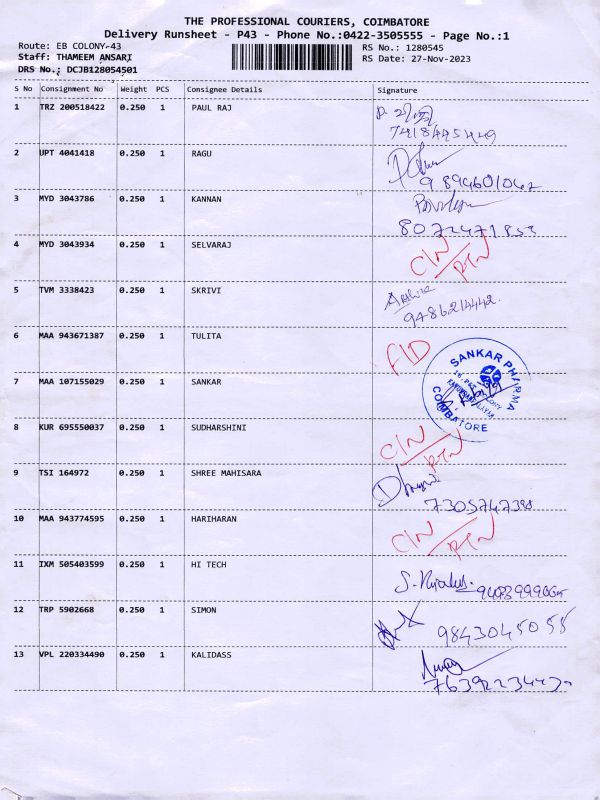 THE PROFESSIONAL COURIERS, COIMBATORE
Delivery Runsheet - P43 - Phone No.:0422-3505555 - Page No.:1
Route: EB COLONY-43
RS No.: 1280545
Staff: THAMEEM ANSARI
RS Date: 27-Nov-2023
DRS No.: DCJB128054501
S No Consignment No Weight PCS Consignee Details Signature
1 TRZ 200518422 0.250 1 PAUL RAJ
7418445449
2 UPT 4041418 0.250 1 RAGU
9894601042
3 MYD 3043786 0.250 1 KANNAN
4 MYD 3043934 0.250 1 SELVARAJ C/N
RTN
5 TVM 3338423 0.250 1 SKRIVI
9486214442
6 MAA 943671387 0.250 1 TULITA F/D
7 MAA 107155029 0.250 1 SANKAR SANKAR PHARMA
COIMBATORE
8 KUR 695550037 0.250 1 SUDHARSHINI C/N
RTN
9 TSI 164972 0.250 1 SHREE MAHISARA
7305747398
10 MAA 943774595 0.250 1 HARIHARAN C/N
RTN
11 IXM 505403599 0.250 1 HI TECH
12 TRP 5902668 0.250 1 SIMON
9843045058
13 VPL 220334490 0.250 1 KALIDASS